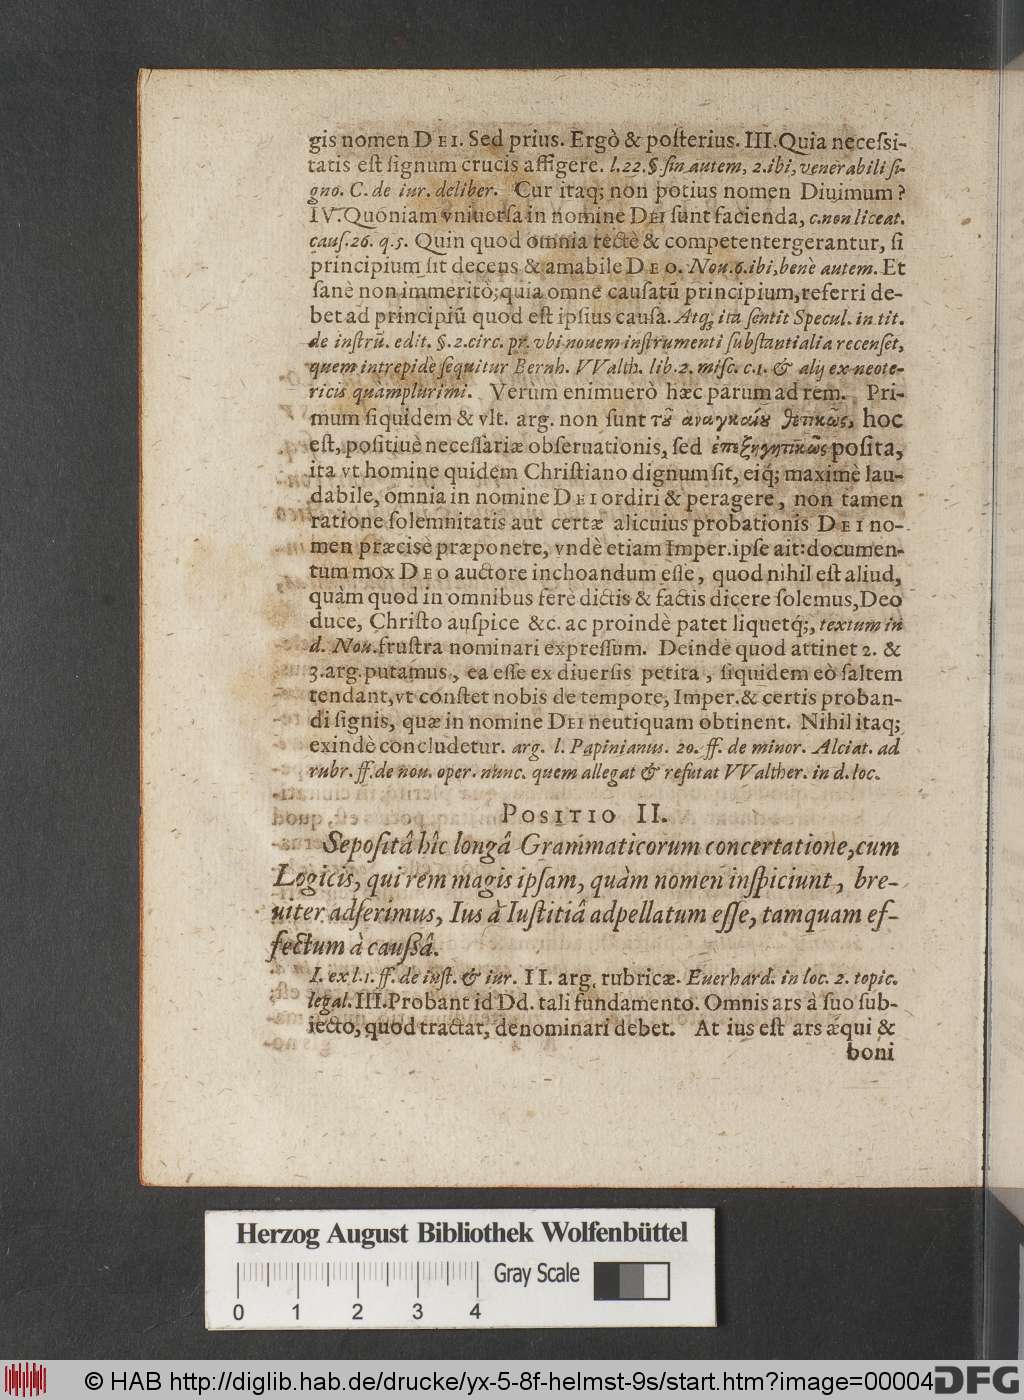 gis nomen DEI. Sed prius. Ergò & poſterius. III. Quia neceſſi-
tatis eſt ſignum crucis affigere. l. 22. §. ſin autem, 2. ibi, venerabili ſi-
gno. C. de iur. deliber. Cur itaq; non potius nomen Diuimum?
IV. Quoniam vniuerſa in nomine DEI ſunt facienda, c. non liceat.
cauſ. 26. q. 5. Quin quod omnia rectè & competenter gerantur, ſi
principium ſit decens & amabile DEO. Nou. 6. ibi, benè autem. Et
ſanè non immeritò; quia omne cauſatū principium, referri de-
bet ad principiū quod eſt ipſius cauſa. Atq; ita ſentit Specul. in tit.
de inſtru. edit. §. 2. circ. pr. vbi nouem inſtrumenti ſubſtantialia recenſet,
quem intrepidè ſequitur Bernh. VValth. lib. 2. miſc. c. 1. & alij ex neote-
ricis quàmplurimi. Verùm enimuerò hæc parum ad rem. Pri-
mum ſiquidem & vlt. arg. non ſunt τοῦ ἀναγκαίου θετικῶς, hoc
eſt, poſitiuè neceſſariæ obſeruationis, ſed ἐπεξηγητικῶς poſita,
ita vt homine quidem Chriſtiano dignum ſit, eiq́; maximè lau-
dabile, omnia in nomine DEI ordiri & peragere, non tamen
ratione ſolemnitatis aut certæ alicuius probationis DEI no-
men præcisè præponere, vndè etiam Imper. ipſe ait: documen-
tum mox DEO auctore inchoandum eſſe, quod nihil eſt aliud,
quàm quod in omnibus ferè dictis & factis dicere ſolemus, Deo
duce, Chriſto auſpice &c. ac proindè patet liquetq́;, textum in
d. Nou. fruſtra nominari expreſſum. Deinde quod attinet 2. &
3. arg. putamus, ea eſſe ex diuerſis petita, ſiquidem eò ſaltem
tendant, vt conſtet nobis de tempore, Imper. & certis proban-
di ſignis, quæ in nomine DEI neutiquam obtinent. Nihil itaq;
exindè concludetur. arg. l. Papinianus. 20. ff. de minor. Alciat. ad
rubr. ff. de nou. oper. nunc. quem allegat & refutat VValther. in d. loc.
POSITIO II.
Sepoſitâ hîc longâ Grammaticorum concertatione, cum
Logicis, qui rem magis ipſam, quàm nomen inſpiciunt, bre-
uiter adſerimus, Ius à Iuſtitiâ adpellatum eſſe, tamquam ef-
fectum à cauſſâ.
I. ex l. 1. ff. de iuſt. & iur. II. arg. rubricæ. Euerhard. in loc. 2. topic.
legal. III. Probant id Dd. tali fundamento. Omnis ars à ſuo ſub-
iecto, quod tractat, denominari debet. At ius eſt ars æqui &
boni
Herzog August Bibliothek Wolfenbüttel
Gray Scale
0 1 2 3 4
© HAB http://diglib.hab.de/drucke/yx-5-8f-helmst-9s/start.htm?image=00004
DFG